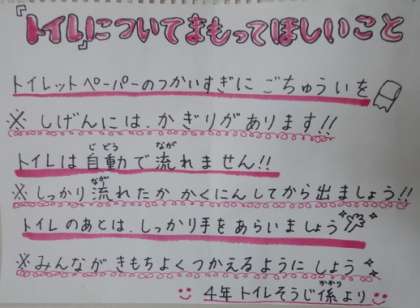 『トイレ』についてまもってほしいこと
トイレットペーパーのつかいすぎに ごちゅういを
※ しげんには、かぎりがあります!!
トイレは自動で流れません!!
※ しっかり流れたか かくにんしてから出ましょう!!
トイレのあとは、しっかり手をあらいましょう
※ みんなが きもちよく つかえるように しよう
4年トイレそうじ係より